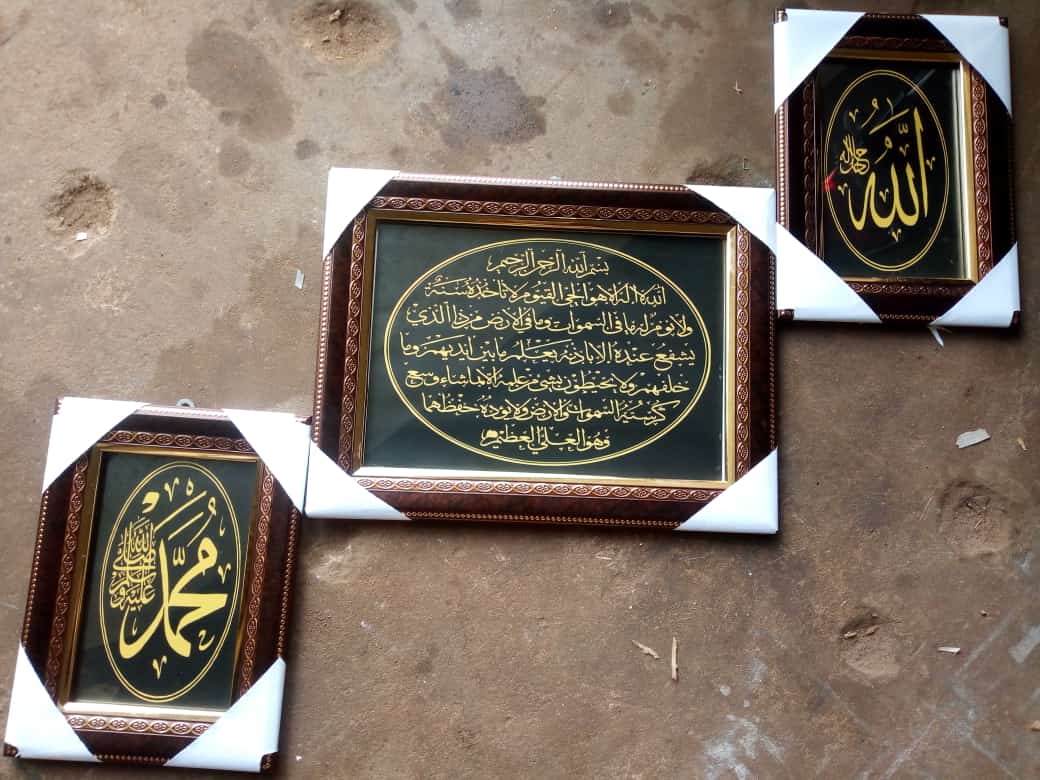 الله
جل جلاله
بسم الله الرحمن الرحيم
الله لا اله الا هو الحي القيوم لا تاخذه سنة
ولا نوم له ما في السموات وما في الارض من ذا الذي
يشفع عنده الا باذنه يعلم ما بين ايديهم وما
خلفهم ولا يحيطون بشيء من علمه الا بما شاء وسع
كرسيه السموات والارض ولا يؤده حفظهما
وهو العلي العظيم
محمد
صلى الله عليه وسلم